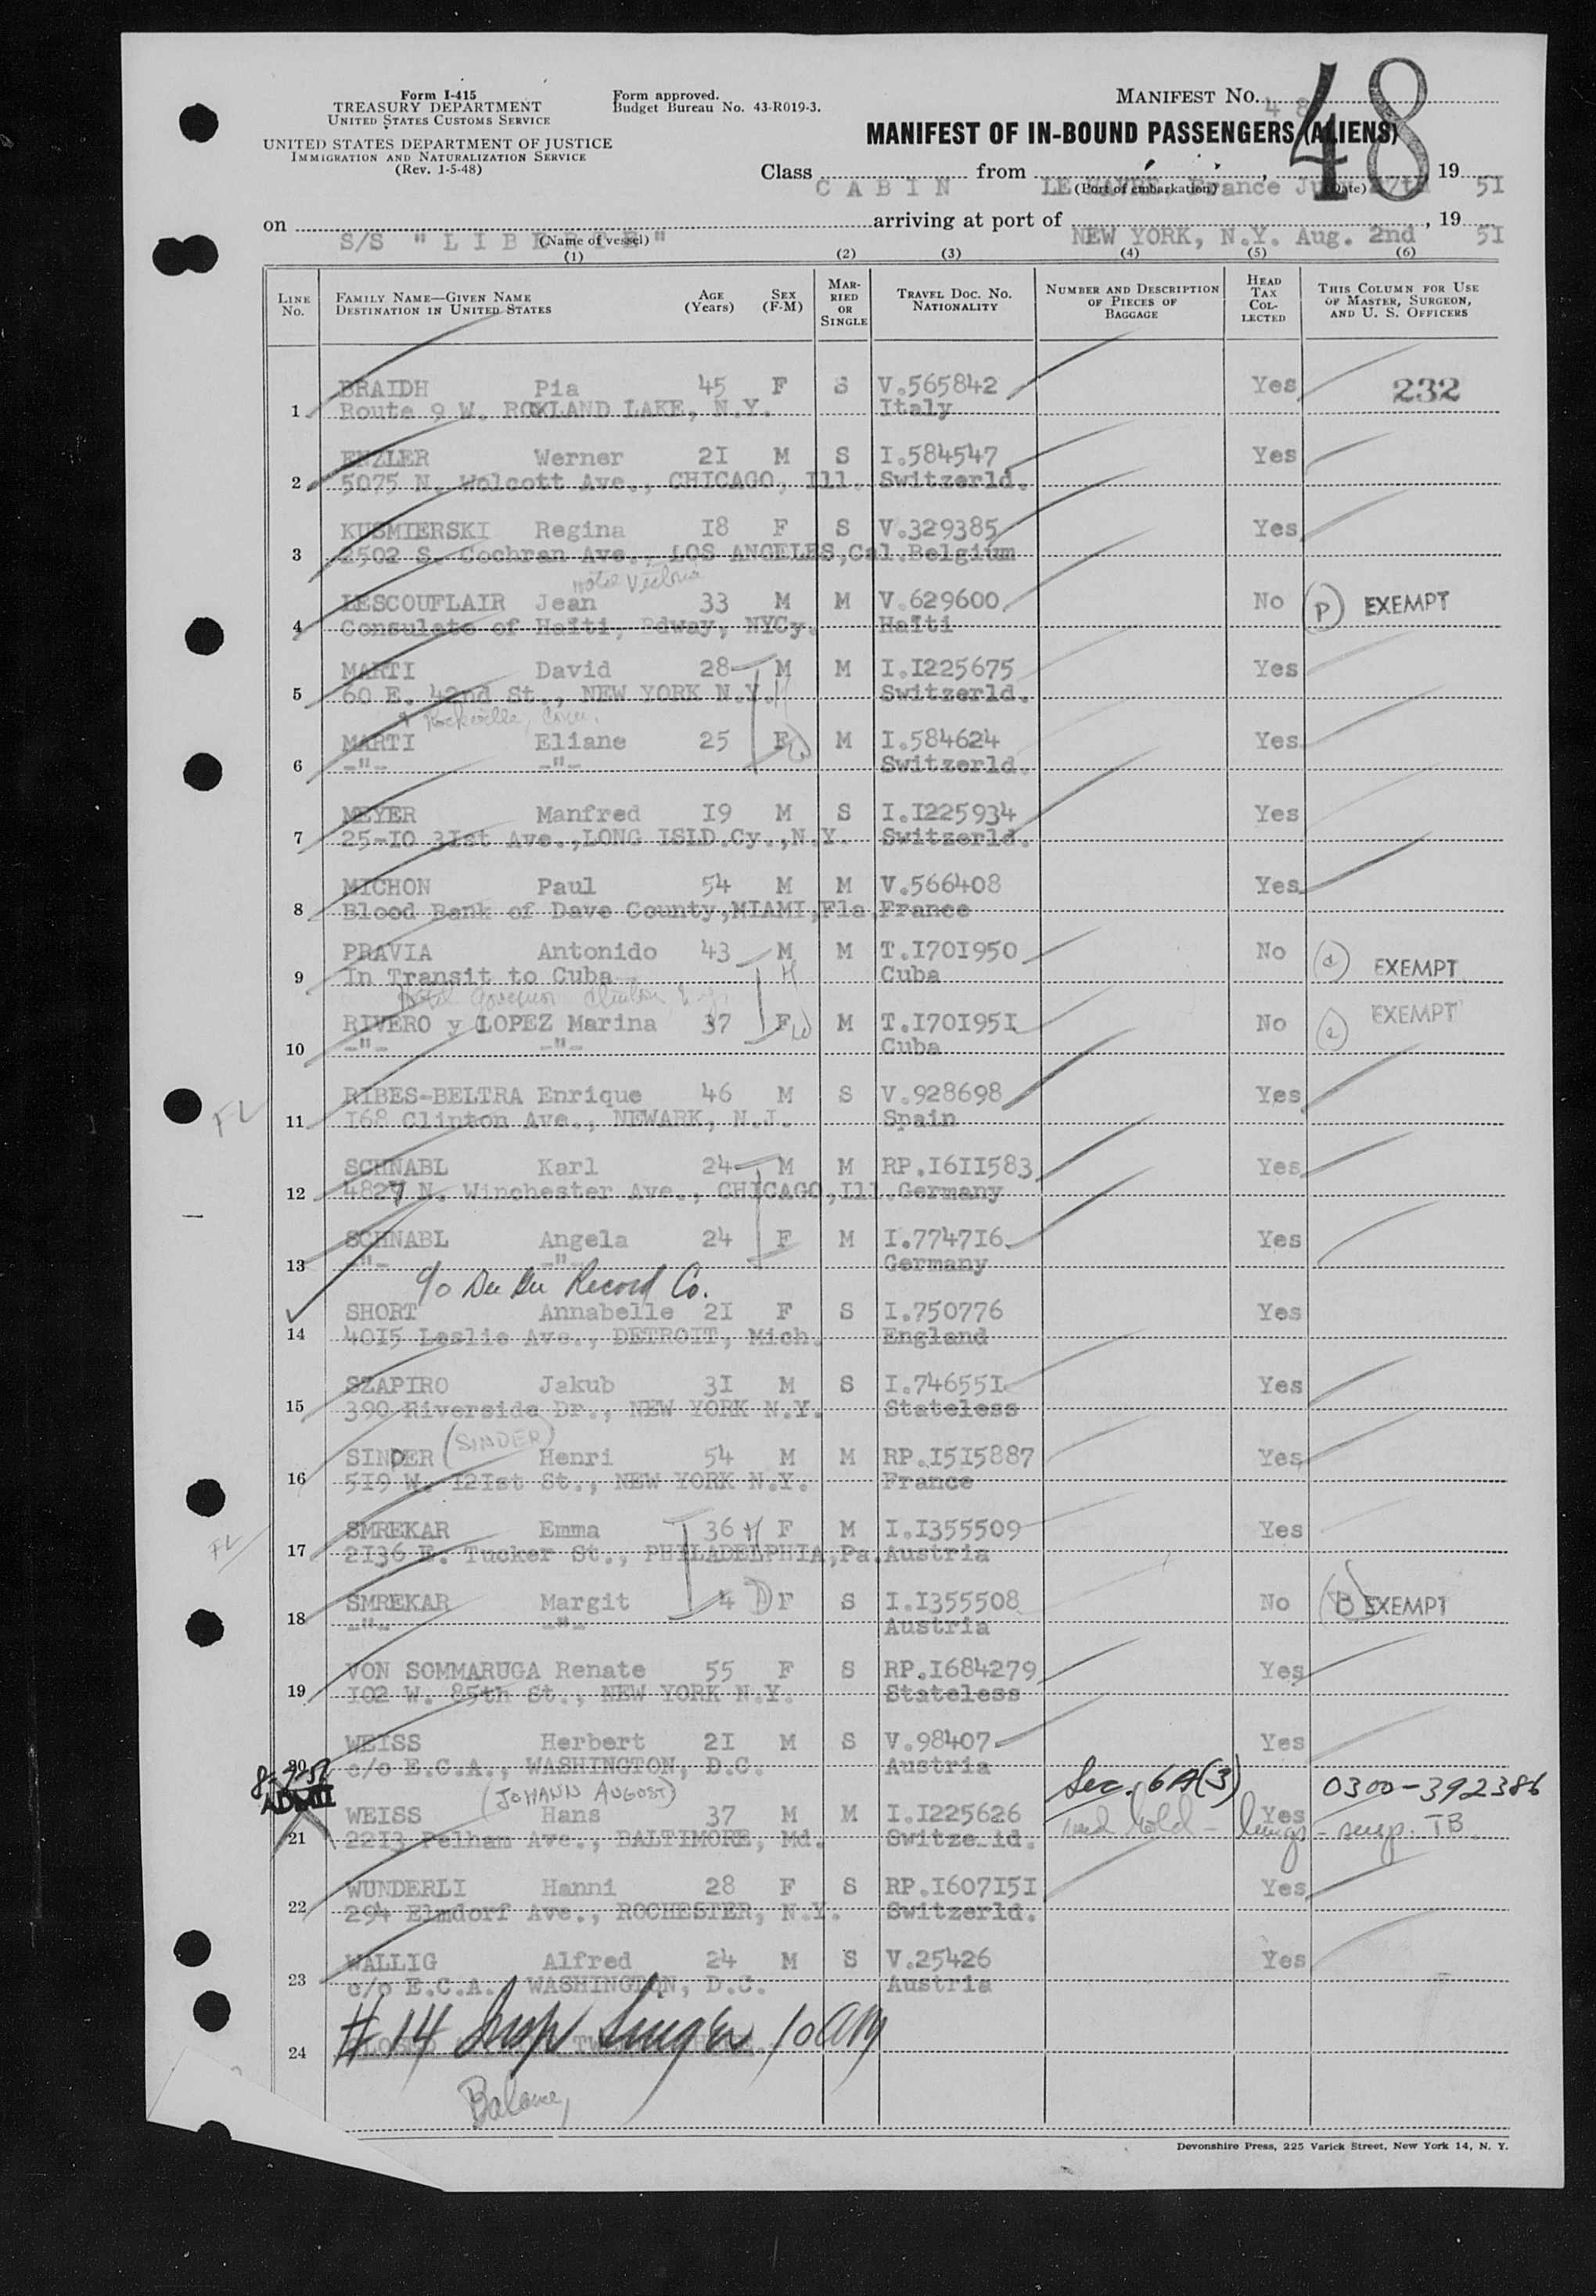 Form I-415
TREASURY DEPARTMENT
UNITED STATES CUSTOMS SERVICE
UNITED STATES DEPARTMENT OF JUSTICE
IMMIGRATION AND NATURALIZATION SERVICE
(Rev. 1-5-48)
Form approved.
Budget Bureau No. 43-R019-3.
MANIFEST NO. 48
48
MANIFEST OF IN-BOUND PASSENGERS (ALIENS)
Class CABIN from LE HAVRE, France , 19 51
(Port of embarkation) (Date)
on S/S "LIBERTE" arriving at port of NEW YORK, N.Y. Aug. 2nd , 19 51
(Name of vessel)
(1) (2) (3) (4) (5) (6)
LINE No. FAMILY NAME—GIVEN NAME DESTINATION IN UNITED STATES AGE (Years) SEX (F-M) MARRIED OR SINGLE TRAVEL DOC. NO. NATIONALITY NUMBER AND DESCRIPTION OF PIECES OF BAGGAGE HEAD TAX COLLECTED THIS COLUMN FOR USE OF MASTER, SURGEON, AND U. S. OFFICERS
BRAIDH Pia 45 F S V.565842 Yes 232
1 Route 9 W. ROCKLAND LAKE, N.Y. Italy
ENZLER Werner 21 M S I.584547 Yes
2 5075 N. Wolcott Ave., CHICAGO, Ill. Switzerld.
KUSMIERSKI Regina 18 F S V.329385 Yes
3 2502 S. Cochran Ave., LOS ANGELES, Cal. Belgium
Hotel Victoria
LESCOUFLAIR Jean 33 M M V.629600 No (P) EXEMPT
4 Consulate of Haïti, Bdway, NYCy. Haïti
MARTI David 28 M M I.I225675 Yes
5 60 E. 42nd St., NEW YORK N.Y. H Switzerld.
Rockville, Conn.
MARTI Eliane 25 F W M I.584624 Yes
6 -"- -"- Switzerld.
MEYER Manfred 19 M S I.I225934 Yes
7 25-10 31st Ave., LONG ISLD.Cy., N.Y. Switzerld.
MICHON Paul 54 M M V.566408 Yes
8 Blood Bank of Dave County, MIAMI, Fla. France
PRAVIA Antonido 43 M M T.I701950 No EXEMPT
9 In Transit to Cuba H Cuba
Hotel Governor Clinton
RIVERO y LOPEZ Marina 37 F W M T.I701951 No EXEMPT
10 -"- -"- Cuba
RIBES-BELTRA Enrique 46 M S V.928698 Yes
FL 11 168 Clinton Ave., NEWARK, N.J. Spain
SCHNABL Karl 24 M M RP.I611583 Yes
12 4827 N. Winchester Ave., CHICAGO, Ill. Germany
SCHNABL Angela 24 F M I.774716 Yes
13 -"- -"- Germany
c/o Dee Gee Record Co.
SHORT Annabelle 21 F S I.750776 Yes
14 4015 Leslie Ave., DETROIT, Mich. England
SZAPIRO Jakub 31 M S I.746551 Yes
15 390 Riverside Dr., NEW YORK N.Y. Stateless
SINDER (SINDER) Henri 54 M M RP.I515887 Yes
16 519 W. 121st St., NEW YORK N.Y. France
SMREKAR Emma 36 F M I.I355509 Yes
FL 17 2136 E. Tucker St., PHILADELPHIA, Pa. Austria
SMREKAR Margit 4 D F S I.I355508 No (B) EXEMPT
18 -"- -"- Austria
VON SOMMARUGA Renate 55 F S RP.I684279 Yes
19 102 W. 85th St., NEW YORK N.Y. Stateless
WEISS Herbert 21 M S V.98407 Yes
20 c/o E.C.A., WASHINGTON, D.C. Austria
(JOHANN AUGUST) Sec. 6A(3) 0300-392386
WEISS Hans 37 M M I.I225626 Yes
21 2213 Pelham Ave., BALTIMORE, Md. Switze ld. med hold - lungs - susp. TB.
WUNDERLI Hanni 28 F S RP.I607151 Yes
22 294 Elmdorf Ave., ROCHESTER, N.Y. Switzerld.
WALLIG Alfred 24 M S V.25426 Yes
23 c/o E.C.A. WASHINGTON, D.C. Austria
24 # 14 Insp Singer 10 AM
Balance
Devonshire Press, 225 Varick Street, New York 14, N. Y.